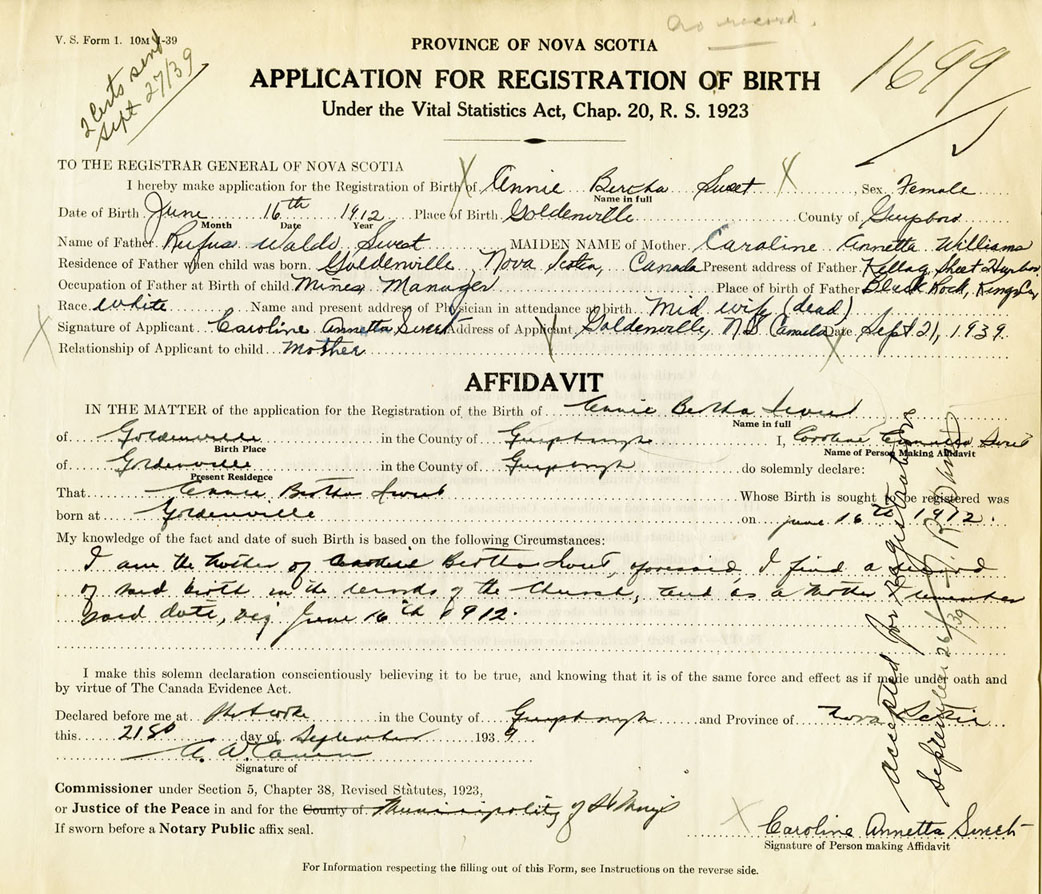 no record.
V. S. Form 1. 10M 4-39
2 Certs sent
Sept 27/39
PROVINCE OF NOVA SCOTIA
1699
APPLICATION FOR REGISTRATION OF BIRTH
Under the Vital Statistics Act, Chap. 20, R. S. 1923
TO THE REGISTRAR GENERAL OF NOVA SCOTIA
I hereby make application for the Registration of Birth of Annie Bertha Sweet Sex Female
Name in full
Date of Birth June 16th 1912 Place of Birth Goldenville County of Guysboro
Month Date Year
Name of Father Rufus Waldo Sweet MAIDEN NAME of Mother Caroline Annetta Williams
Residence of Father when child was born Goldenville, Nova Scotia, Canada Present address of Father Sheet Harbor
Occupation of Father at Birth of child Mines Manager Place of birth of Father Black Rock, Kings Co
Race White Name and present address of Physician in attendance at birth Mid wife (dead)
Signature of Applicant Caroline Annetta Sweet Address of Applicant Goldenville, N.S Canada Date Sept. 21, 1939.
Relationship of Applicant to child Mother
AFFIDAVIT
IN THE MATTER of the application for the Registration of the Birth of Annie Bertha Sweet
Name in full
of Goldenville in the County of Guysborough I, Caroline Annetta Sweet
Birth Place Name of Person Making Affidavit
of Goldenville in the County of Guysborough do solemnly declare:
Present Residence
That Annie Bertha Sweet Whose Birth is sought to be registered was
born at Goldenville on June 16th 1912.
My knowledge of the fact and date of such Birth is based on the following Circumstances:
I am the Mother of Bertha Sweet, aforesaid, I find a record
of said birth in the records of the Church, and as a Mother I remember
said date, viz June 16th 1912.
I make this solemn declaration conscientiously believing it to be true, and knowing that it is of the same force and effect as if made under oath and
by virtue of The Canada Evidence Act.
Declared before me at Sherbrooke in the County of Guysborough and Province of Nova Scotia
this 21st day of September 1939.
Signature of
Commissioner under Section 5, Chapter 38, Revised Statutes, 1923,
or Justice of the Peace in and for the County of Municipality of St Mary's
If sworn before a Notary Public affix seal.
Caroline Annetta Sweet
Signature of Person making Affidavit
For Information respecting the filling out of this Form, see Instructions on the reverse side.
accepted for Registration
September 26/39